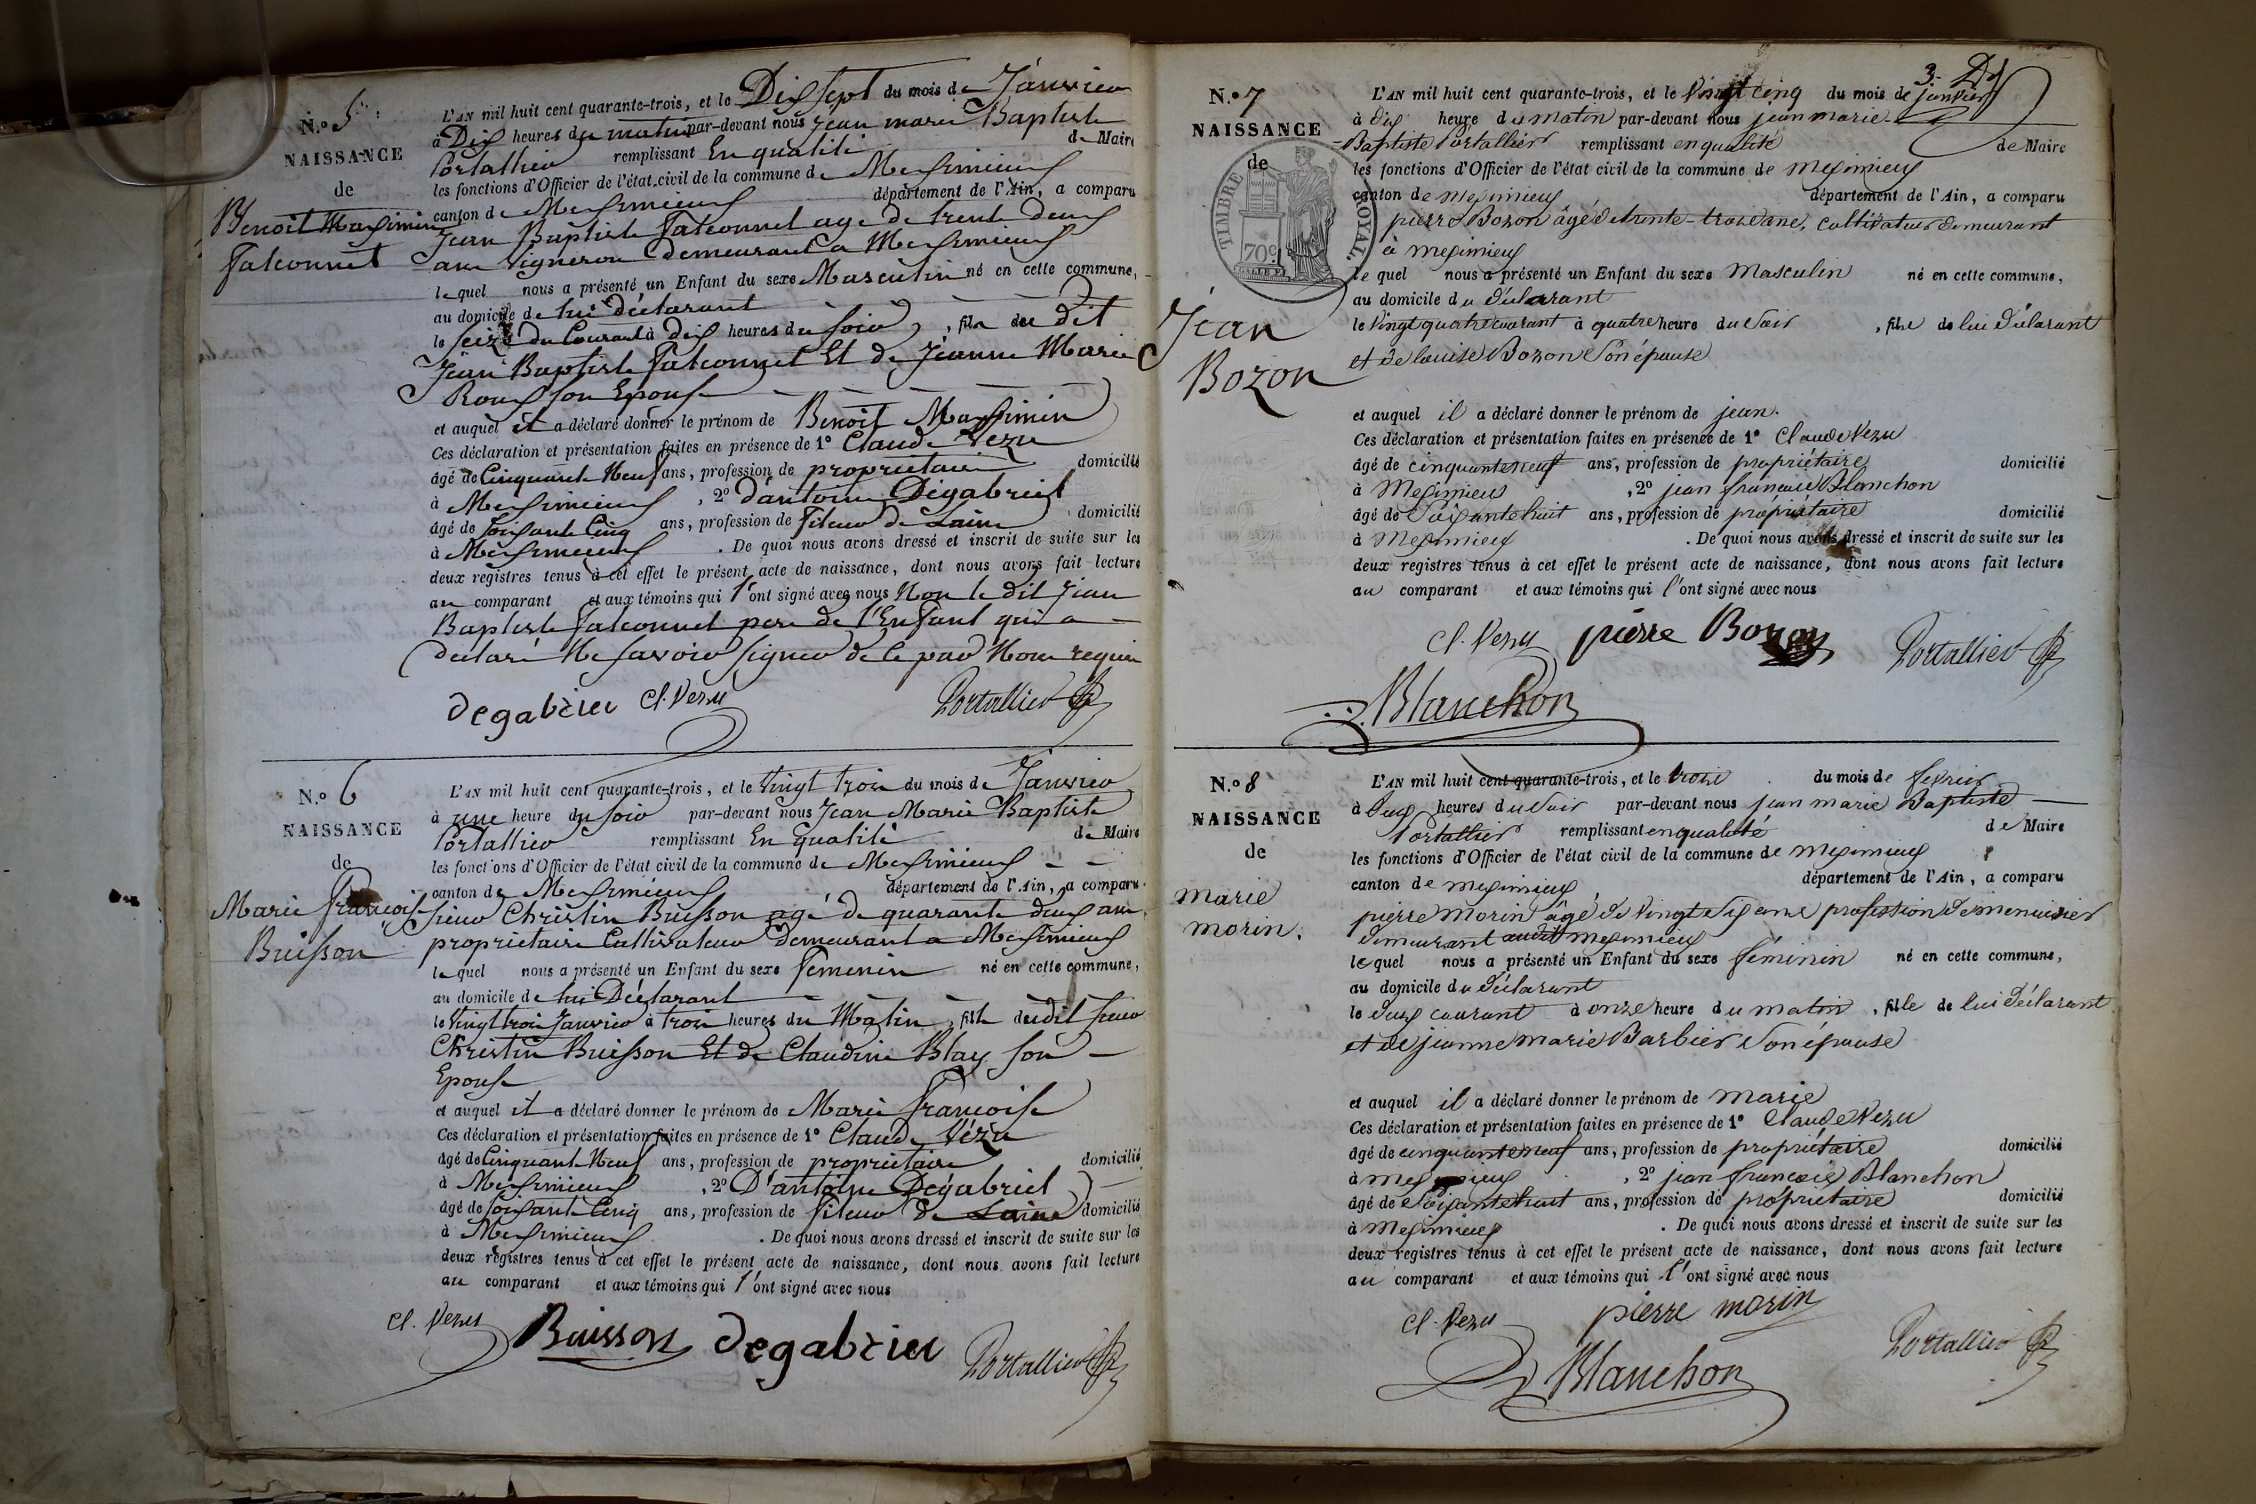 N.o 5
NAISSANCE
de
Benoit Maximin
Falconnet
L'AN mil huit cent quarante-trois, et le Dix sept du mois de Janvier
à Dix heures du matin par-devant nous Jean marie Baptiste
Portallier remplissant En qualité de Maire
les fonctions d'Officier de l'état civil de la commune de Meximieux
canton de Meximieux département de l'Ain, a comparu
Jean Baptiste Falconnet agé de trente deux
ans Vigneron demeurant a Meximieux
lequel nous a présenté un Enfant du sexe Masculin né en cette commune,
au domicile de lui déclarant
le seize du Courant à dix heures du soir, fils du dit
Jean Baptiste Falconnet Et de Jeanne Marie
Roux son Epouse
et auquel il a déclaré donner le prénom de Benoit Maximin
Ces déclaration et présentation faites en présence de 1° Claude Vezu
âgé de Cinquante Neuf ans, profession de propriétaire domicilié
à Meximieux, 2° d'antoine Dégabriel
âgé de soixante Cinq ans, profession de fileur de Laine domicilié
à Meximieux. De quoi nous avons dressé et inscrit de suite sur les
deux registres tenus à cet effet le présent acte de naissance, dont nous avons fait lecture
au comparant et aux témoins qui l'ont signé avec nous Non le dit Jean
Baptiste Falconnet pere de l'Enfant qui a
déclaré Ne savoir signer de ce par Nous requis
degabriel Cl. Vezu Portallier
N.o 6
NAISSANCE
de
Marie françoise
Buisson
L'AN mil huit cent quarante-trois, et le Vingt trois du mois de Janvier
à une heure du soir par-devant nous Jean Marie Baptiste
Portallier remplissant En qualité de Maire
les fonctions d'Officier de l'état civil de la commune de Meximieux
canton de Meximieux département de l'Ain, a comparu
sieur Christin Buisson agé de quarante deux ans
propriétaire Cultivateur demeurant a Meximieux
lequel nous a présenté un Enfant du sexe femenin né en cette commune,
au domicile de lui Déclarant
le Vingt trois Janvier à trois heures du Matin, fille du dit sieur
Christin Buisson Et de Claudine Blay son
Epouse
et auquel il a déclaré donner le prénom de Marie françoise
Ces déclaration et présentation faites en présence de 1° Claude Vézu
âgé de Cinquante Neuf ans, profession de propriétaire domicilié
à Meximieux, 2° D'antoine Dégabriel
âgé de soixante Cinq ans, profession de fileur de Laine domicilié
à Meximieux. De quoi nous avons dressé et inscrit de suite sur les
deux registres tenus à cet effet le présent acte de naissance, dont nous avons fait lecture
au comparant et aux témoins qui l'ont signé avec nous
Cl. Vezu Buisson degabriel Portallier
3
N.o 7
NAISSANCE
de
TIMBRE ROYAL
70c
Jean
Bozon
L'AN mil huit cent quarante-trois, et le Vingt cinq du mois de janvier
à dix heure du matin par-devant nous jean marie
Baptiste Portallier remplissant en qualité de Maire
les fonctions d'Officier de l'état civil de la commune de meximieux
canton de meximieux département de l'Ain, a comparu
pierre Bozon âgé de trente-trois ans, cultivateur demeurant
à meximieux
lequel nous a présenté un Enfant du sexe masculin né en cette commune,
au domicile du déclarant
le Vingt quatre courant à quatre heure du soir, fils de lui déclarant
et de louise Bozon son épouse
et auquel il a déclaré donner le prénom de jean.
Ces déclaration et présentation faites en présence de 1° Claude Vezu
âgé de cinquante neuf ans, profession de propriétaire domicilié
à Meximieux, 2° jean françois Blanchon
âgé de soixante huit ans, profession de propriétaire domicilié
à Meximieux. De quoi nous avons dressé et inscrit de suite sur les
deux registres tenus à cet effet le présent acte de naissance, dont nous avons fait lecture
au comparant et aux témoins qui l'ont signé avec nous
Cl. Vezu pierre Bozon Portallier
Blanchon
N.o 8
NAISSANCE
de
marie
morin.
L'AN mil huit cent quarante-trois, et le trois du mois de fevrier
à deux heures du soir par-devant nous jean marie Baptiste
Portallier remplissant en qualité de Maire
les fonctions d'Officier de l'état civil de la commune de meximieux
canton de meximieux, département de l'Ain, a comparu
pierre morin âgé de vingt six ans profession de menuisier
demeurant audit meximieux
lequel nous a présenté un Enfant du sexe féminin né en cette commune,
au domicile du déclarant
le deux courant à onze heure du matin, fille de lui déclarant
et de jeanne marie Barbier son épouse
et auquel il a déclaré donner le prénom de marie
Ces déclaration et présentation faites en présence de 1° Claude Vezu
âgé de cinquante neuf ans, profession de propriétaire domicilié
à meximieux, 2° jean françois Blanchon
âgé de soixante huit ans, profession de propriétaire domicilié
à Meximieux. De quoi nous avons dressé et inscrit de suite sur les
deux registres tenus à cet effet le présent acte de naissance, dont nous avons fait lecture
au comparant et aux témoins qui l'ont signé avec nous
Cl. Vezu pierre morin Portallier
Blanchon